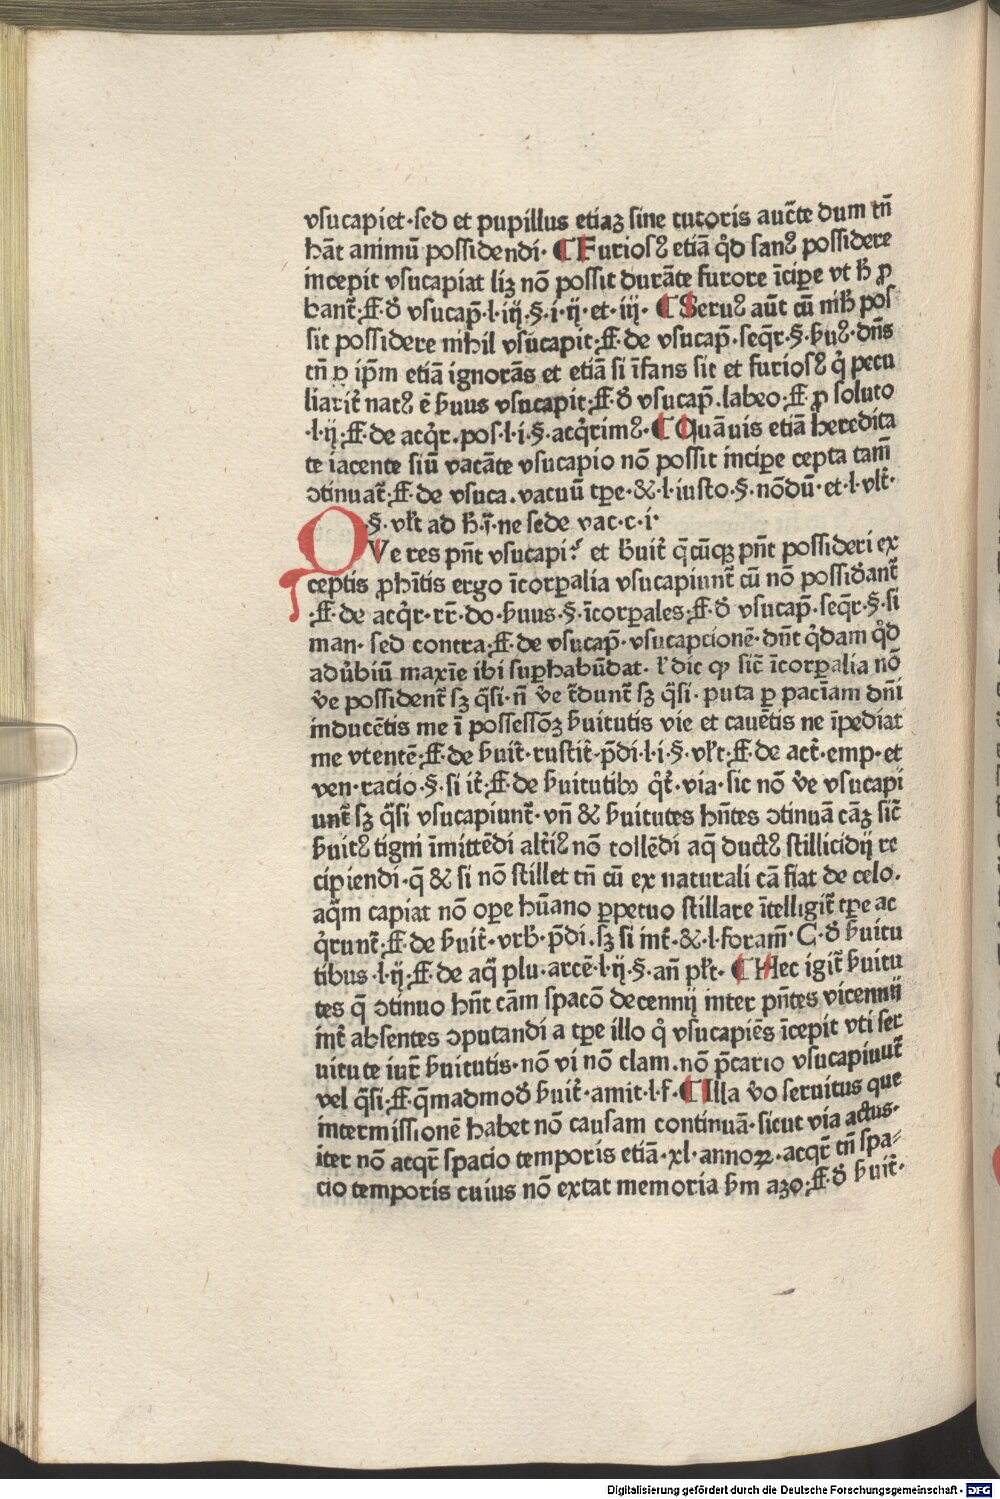 vsucapiet·sed et pupillus etiaꝫ sine tutoris auc̄te dum tn̄
hāt animū possidendi· ¶ Furiosꝰ etiā qͦd sanꝰ possidere
incepit vsucapiat liꝫ nō possit durāte furore īciꝑe vt ħ ꝓ
bant᷑·ff·đ vsucap̄·l·iiij·§·i·ij·et·iij· ¶ Seruꝰ aūt cū nihͥl pos
sit possidere nihil vsucapit·ff·de vsucap̄·seqr̄·§·ẜuꝰ·dn̄s
tn̄ ꝑ ip̄m etiā ignorās et etiā si īfans sit et furiosꝰ qͥ pecu
liarit᷑ natꝰ ē ẜuus vsucapit·ff·đ vsucap̄·labeo·ff·ꝓ soluto
·l·ij·ff·de acqͥr·pos·l·i·§·acqͥrimꝰ·¶ Quāuis etiā heredita
te iacente siū vacāte vsucapio nō possit inciꝑe cepta tam̄
ↄtinuat᷑·ff·de vsuca·vacuū tꝑe·&·l·iusto·§·nōdū·et·l·vlt᷑·
§·vlt᷑ ad ħ·ī·ne sede vac·c·i·
QVe res pn̄t vsucapi? et ẜuit᷑ q̄cūqꝫ pn̄t possideri ex
ceptis ꝓhītis ergo īcorꝑalia vsucapiunt᷑ cū nō possiđant᷑
·ff·de acqͥr·rr̄·do·ẜuus·§·īcorꝑales·ff·đ vsucap̄·seqr̄·§·si
man· sed contra·ff·de vsucap̄·vsucapcionē·dn̄t qͥdam qͦd
adûbiū maxīe ibi suꝑhabūdat· ł dic ꝙ sic̄ īcorꝑalia nō
v̄e possident᷑ sꝫ q̄si·n̄ v̄e t᷑dunt᷑ sꝫ q̄si·puta ꝑ pacīam dn̄i
inducētis me ī possessōꝫ ẜuitutis vie et cauētis ne īpediat
me vtentē·ff·de ẜuit᷑·rustit᷑·p̄di·l·i·§·vlt᷑·ff·de act᷑·emp·et
ven·racio·§·si it᷑·ff·de ẜuitutibꝰ qͥt᷑·via·sic nō v̄e vsucapi
unt᷑ sꝫ q̄si vsucapiunt᷑·vn̄ & ẜuitutes hn̄tes ↄtinuā cāꝫ sic̄
ẜuitꝰ tigni īmittēdi alt᷑iꝰ nō tollēdi aq̄ ductꝰ stillicidij re
cipiendi·q̄ & si nō stillet tn̄ cū ex naturali cā fiat de celo·
aq̄m capiat nō oꝑe hūano ꝑpetuo stillare ītelligit᷑ tꝑe ac
qͥrunt᷑·ff·de ẜuit᷑·vrb·p̄di·sꝫ si int᷑·&·l·foram̄·C·đ ẜuitu
tibus·l·ij·ff·de aq̄ plu·arcē·l·ij·§·an̄ pt᷑·¶ Hec igit᷑ ẜuitu
tes q̄ ↄtinuo hn̄t cām spacō decennij inter pn̄tes vicennij
int᷑ absentes ↄputandi a tꝑe illo qͦ vsucapiēs īcepit vti ser
uitute iur᷑ ẜuitutis·nō vi nō clam·nō p̄cario vsucapiuut᷑
vel q̄si·ff·q̄madmođ ẜuit᷑·amit·l·f·¶ Illa v̄o seruitus que
intermissionē habet nō causam continuā·sicut via actus·
iter nō acqr᷑ spacio temporis etiā·xl·annoꝝ·acqr᷑ tn̄ spa⸗
cio temporis cuius nō extat memoria ẜm azo·ff·đ ẜuit᷑·
Digitalisierung gefördert durch die Deutsche Forschungsgemeinschaft - DFG